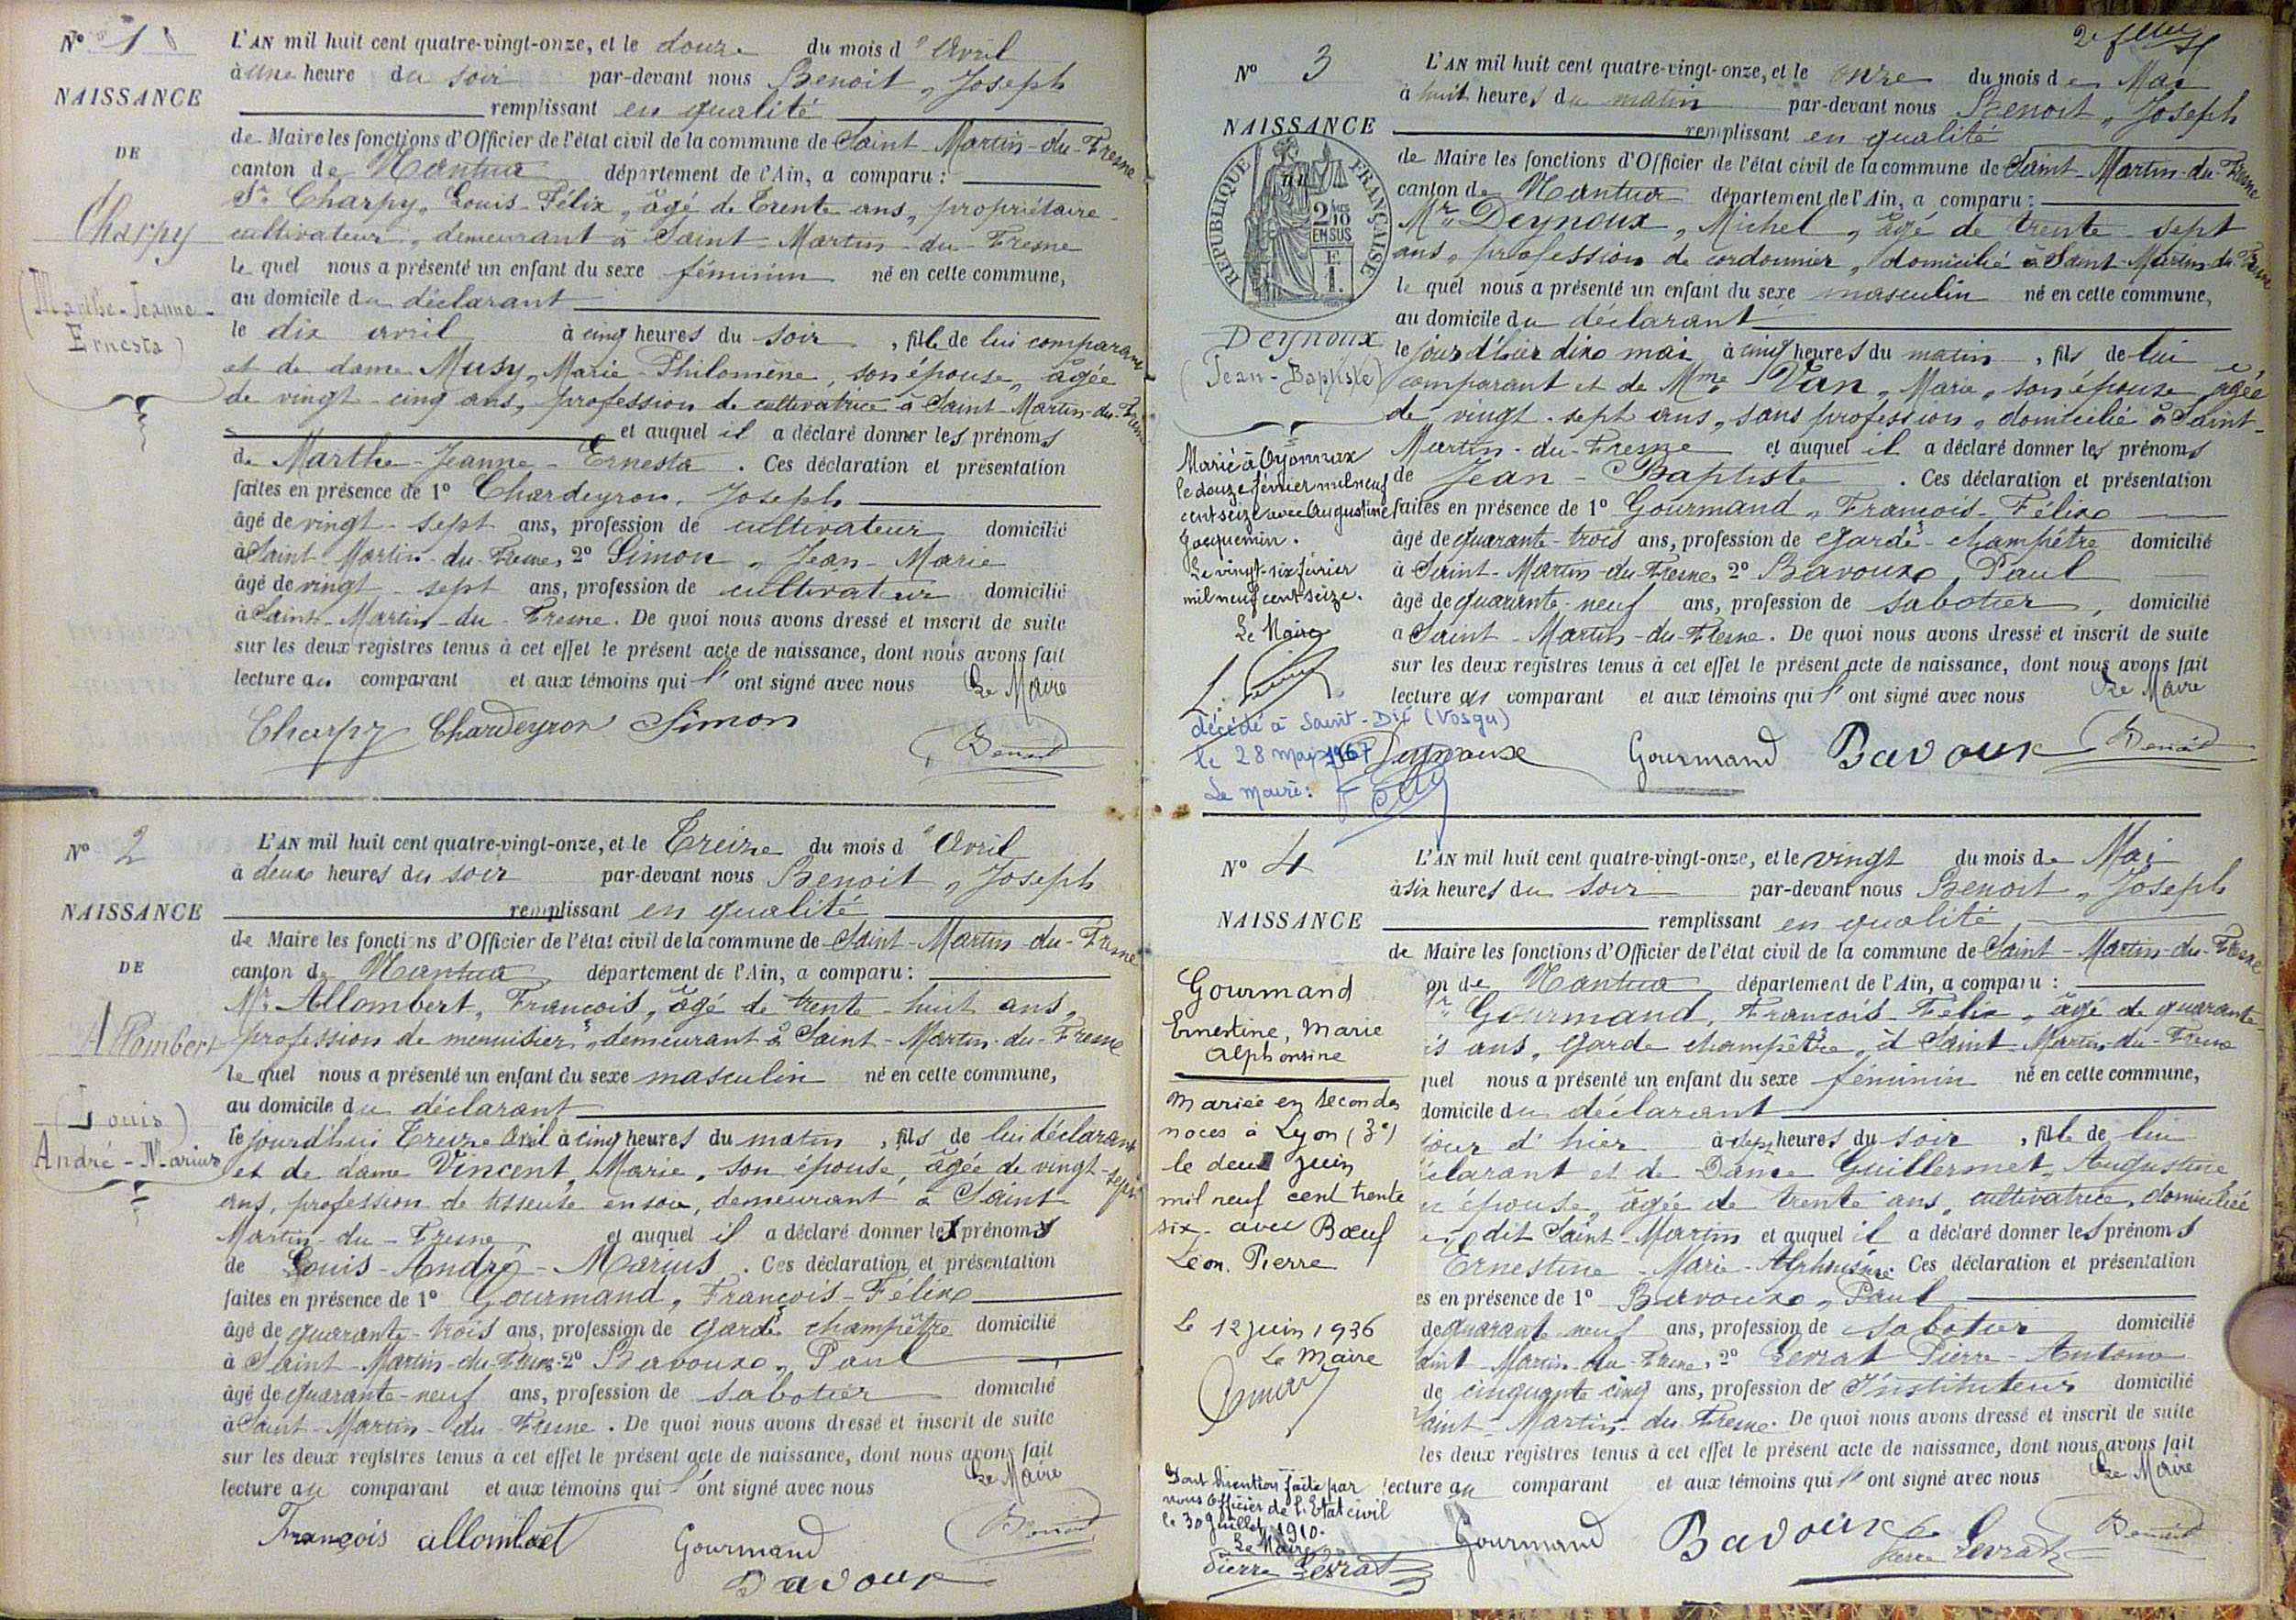 N° 1
NAISSANCE
DE
Charpy
(Marthe-Jeanne-
Ernesta)
L'AN mil huit cent quatre-vingt-onze, et le douze du mois d'Avril
à une heure du soir par-devant nous Benoit, Joseph
remplissant en qualité
de Maire les fonctions d'Officier de l'état civil de la commune de Saint-Martin-du-Fresne
canton de Nantua département de l'Ain, a comparu :
Sr Charpy, Louis-Félix, âgé de Trente ans, propriétaire-
cultivateur, demeurant à Saint-Martin-du-Fresne
lequel nous a présenté un enfant du sexe féminin né en cette commune,
au domicile du déclarant
le dix avril à cinq heures du soir, fille de lui comparant
et de dame Musy, Marie-Philomène, son épouse, âgée
de vingt-cinq ans, profession de cultivatrice à Saint-Martin-du-Fresne
et auquel il a déclaré donner les prénoms
de Marthe-Jeanne-Ernesta. Ces déclaration et présentation
faites en présence de 1° Chardeyron, Joseph
âgé de vingt-sept ans, profession de cultivateur domicilié
à Saint-Martin-du-Fresne, 2° Simon, Jean-Marie
âgé de vingt-sept ans, profession de cultivateur domicilié
à Saint-Martin-du-Fresne. De quoi nous avons dressé et inscrit de suite
sur les deux registres tenus à cet effet le présent acte de naissance, dont nous avons fait
lecture au comparant et aux témoins qui l'ont signé avec nous Le Maire
Charpy Chardeyron Simon
Benoit
N° 2
NAISSANCE
DE
Allombert
(Louis)
André-Marius
L'AN mil huit cent quatre-vingt-onze, et le Treize du mois d'Avril
à deux heures du soir par-devant nous Benoit, Joseph
remplissant en qualité
de Maire les fonctions d'Officier de l'état civil de la commune de Saint-Martin-du-Fresne
canton de Nantua département de l'Ain, a comparu :
Mr Allombert, François, âgé de trente-huit ans,
profession de menuisier, demeurant à Saint-Martin-du-Fresne
lequel nous a présenté un enfant du sexe masculin né en cette commune,
au domicile du déclarant
le jourd'hui Treize Avril à cinq heures du matin, fils de lui déclarant
et de dame Vincent, Marie, son épouse, âgée de vingt-sept
ans, profession de tisseuse en soie, demeurant à Saint
Martin-du-Fresne et auquel il a déclaré donner les prénoms
de Louis-André-Marius. Ces déclaration et présentation
faites en présence de 1° Gourmand, François-Félix
âgé de quarante-trois ans, profession de garde champêtre domicilié
à Saint-Martin-du-Fresne 2° Bavoux, Paul
âgé de quarante-neuf ans, profession de sabotier domicilié
à Saint-Martin-du-Fresne. De quoi nous avons dressé et inscrit de suite
sur les deux registres tenus à cet effet le présent acte de naissance, dont nous avons fait
lecture au comparant et aux témoins qui l'ont signé avec nous Le Maire
François allombert Gourmand Benoit
Bavoux
N° 3
NAISSANCE
RÉPUBLIQUE FRANÇAISE
2 10
EN SUS
Deynoux
(Jean-Baptiste)
Marié à Oyonnax
le douze février mil neuf
cent seize avec Augustine
Jacquemin.
Le vingt-six février
mil neuf cent seize.
Le Maire
décédé à Saint-Dié (Vosges)
le 28 mai 1967
Le maire :
L'AN mil huit cent quatre-vingt-onze, et le onze du mois de Mai
à huit heures du matin par-devant nous Benoit, Joseph
remplissant en qualité
de Maire les fonctions d'Officier de l'état civil de la commune de Saint-Martin-du-Fresne
canton de Nantua département de l'Ain, a comparu :
Mr Deynoux, Michel, âgé de trente-sept
ans, profession de cordonnier, domicilié à Saint-Martin-du-Fresne
lequel nous a présenté un enfant du sexe masculin né en cette commune,
au domicile du déclarant
le jour d'hier dix mai à cinq heures du matin, fils de lui
comparant et de Mme Van, Marie, son épouse, âgée
de vingt-sept ans, sans profession, domicilié à Saint-
Martin-du-Fresne et auquel il a déclaré donner les prénoms
de Jean-Baptiste. Ces déclaration et présentation
faites en présence de 1° Gourmand, François-Félix
âgé de quarante-trois ans, profession de garde-champêtre domicilié
à Saint-Martin-du-Fresne, 2° Bavoux, Paul
âgé de quarante-neuf ans, profession de sabotier, domicilié
à Saint-Martin-du-Fresne. De quoi nous avons dressé et inscrit de suite
sur les deux registres tenus à cet effet le présent acte de naissance, dont nous avons fait
lecture au comparant et aux témoins qui l'ont signé avec nous Le Maire
Deynoux Gourmand Bavoux Benoit
N° 4
NAISSANCE
Gourmand
Ernestine, Marie
Alphonsine
mariée en secondes
noces à Lyon (3e)
le deux juin
mil neuf cent trente
six avec Bœuf
Léon, Pierre
Le 12 juin 1936
Le Maire
Dont mention faite par
nous officier de l'Etat civil
le 30 Juillet 1910.
Le Maire
Pierre Levrat
L'AN mil huit cent quatre-vingt-onze, et le vingt du mois de Mai
à six heures du soir par-devant nous Benoit, Joseph
remplissant en qualité
de Maire les fonctions d'Officier de l'état civil de la commune de Saint-Martin-du-Fresne
on de Nantua département de l'Ain, a comparu :
r Gourmand, François-Félix, âgé de quarante-
is ans, Garde champêtre, à Saint-Martin-du-Fresne
quel nous a présenté un enfant du sexe féminin né en cette commune,
domicile du déclarant
jour d'hier à sept heures du soir, fille de lui
clarant et de Dame Guillermet, Augustine
n épouse, âgée de trente ans, cultivatrice, domiciliée
dit Saint-Martin et auquel il a déclaré donner les prénoms
Ernestine-Marie-Alphonsine. Ces déclaration et présentation
es en présence de 1° Bavoux, Paul
de quarante neuf ans, profession de sabotier domicilié
aint-Martin-du-Fresne, 2° Levrat Pierre-Antoine
de cinquante cinq ans, profession de Instituteur domicilié
aint-Martin-du-Fresne. De quoi nous avons dressé et inscrit de suite
les deux registres tenus à cet effet le présent acte de naissance, dont nous avons fait
lecture au comparant et aux témoins qui l'ont signé avec nous Le Maire
Gourmand Bavoux Pierre Levrat Benoit